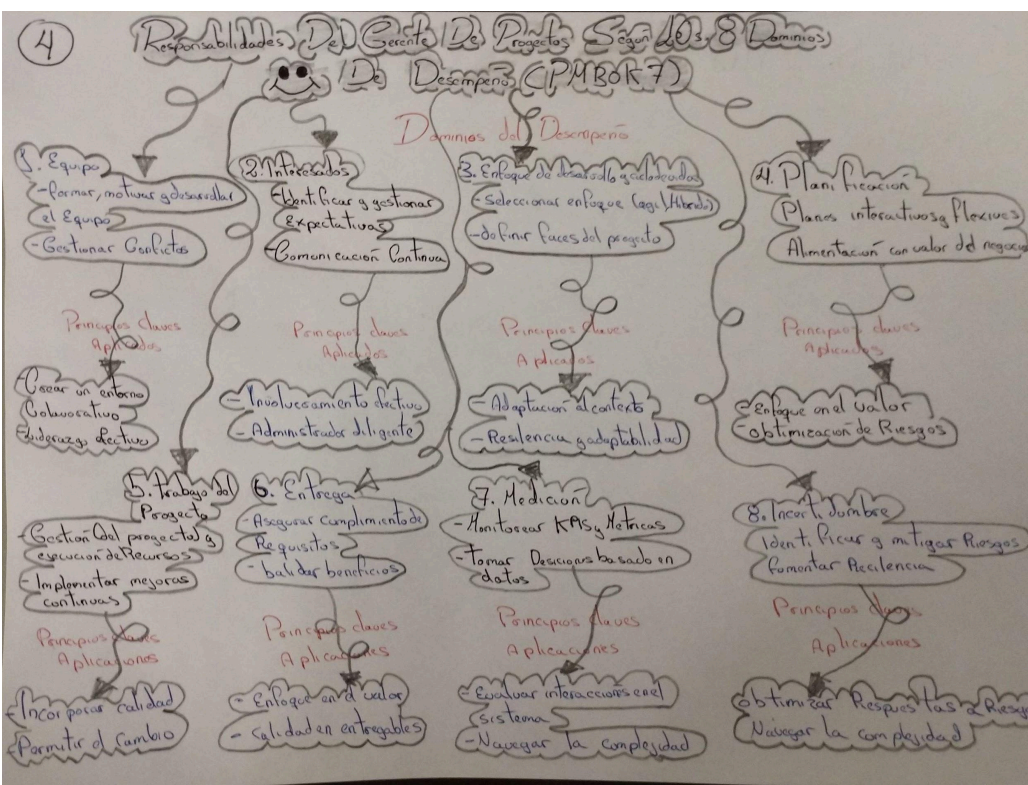 4
Responsabilidades Del Gerente De Proyectos Según Los 8 Dominios
De Desempeño (PMBOK7)
Dominios del Desempeño
1. Equipo
- formar, motivar y desarrollar
el Equipo
- Gestionar Conflictos
Principios claves
Aplicados
- Crear un entorno
Colavorativo
- Liderazgo efectivo
2. Interesados
- Identificar y gestionar
Expectativas
- Comunicación Continua
Principios claves
Aplicados
- Involucramiento efectivo
- Administrador diligente
3. Enfoque de desarrollo y ciclo de vida
- Seleccionar enfoque (agil, Hibrido)
- definir faces del proyecto
Principios claves
Aplicados
- Adaptación al contexto
- Resilencia y adaptabilidad
4. Planificación
Planos interactivos y flexives
Alimentación con valor del negocio
Principios claves
Aplicados
- Enfoque en el valor
- obtimización de Riesgos
5. trabajo del
Proyecto
- Gestión del proyecto y
execución de Recursos
- Implementar mejoras
continuas
Principios claves
Aplicaciones
- Incorporar calidad
- Permitir el cambio
6. Entrega
- Asegurar cumplimiento de
Requisitos
- balidar beneficios
Principios claves
Aplicaciones
- Enfoque en el valor
- Calidad en entregables
7. Medición
- Monitorear KPIs y Metricas
- Tomar Desiciones basado en
datos
Principios claves
Aplicaciones
- Evaluar interacciones en el
sistema
- Navegar la complejidad
8. Incertidumbre
Identificar y mitigar Riesgos
fomentar Recilencia
Principios claves
Aplicaciones
obtimizar Respuestas a Riesgo
Navegar la complejidad